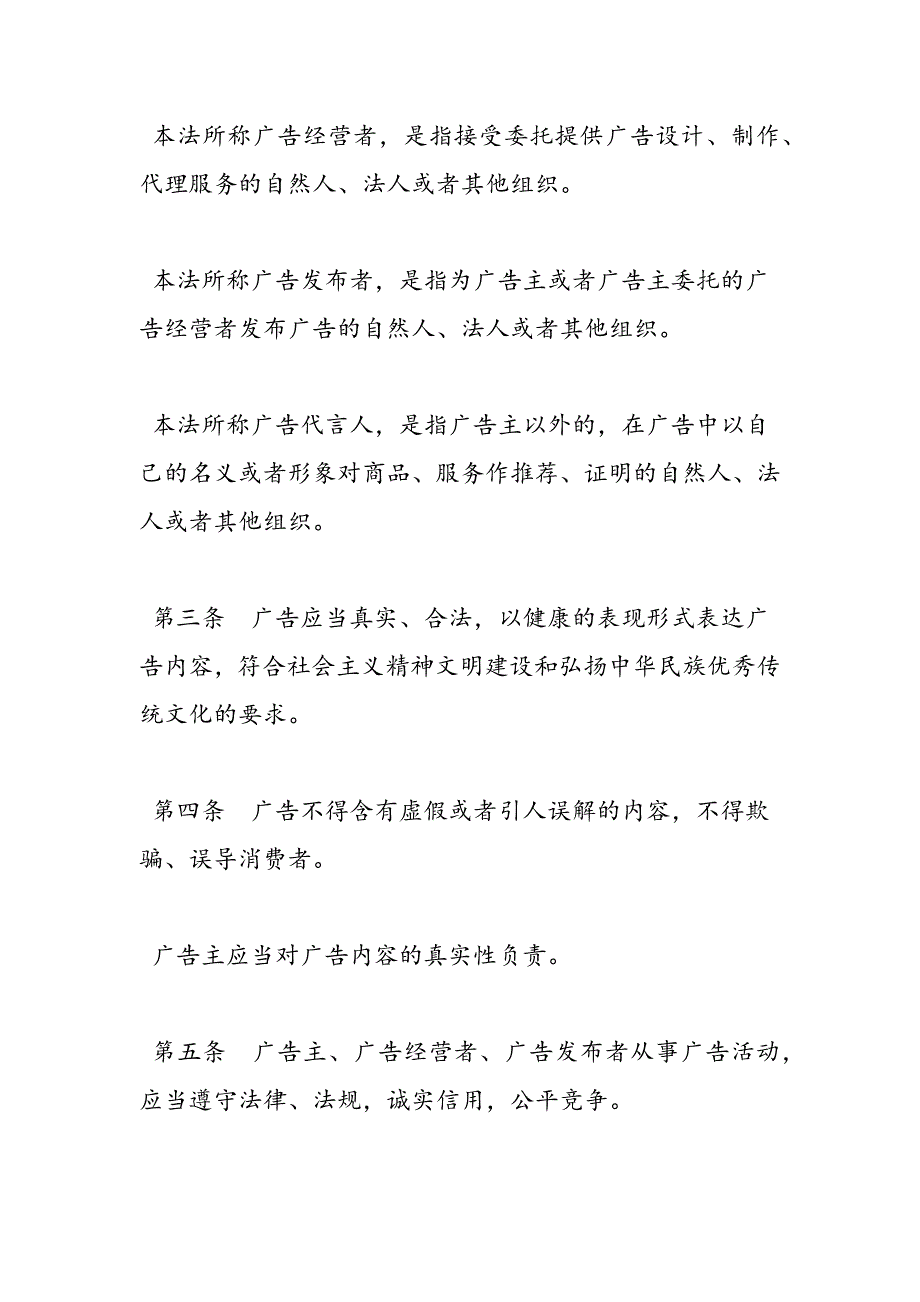 本法所称广告经营者，是指接受委托提供广告设计、制作、
代理服务的自然人、法人或者其他组织。
本法所称广告发布者，是指为广告主或者广告主委托的广
告经营者发布广告的自然人、法人或者其他组织。
本法所称广告代言人，是指广告主以外的，在广告中以自
己的名义或者形象对商品、服务作推荐、证明的自然人、法
人或者其他组织。
第三条　广告应当真实、合法，以健康的表现形式表达广
告内容，符合社会主义精神文明建设和弘扬中华民族优秀传
统文化的要求。
第四条　广告不得含有虚假或者引人误解的内容，不得欺
骗、误导消费者。
广告主应当对广告内容的真实性负责。
第五条　广告主、广告经营者、广告发布者从事广告活动，
应当遵守法律、法规，诚实信用，公平竞争。